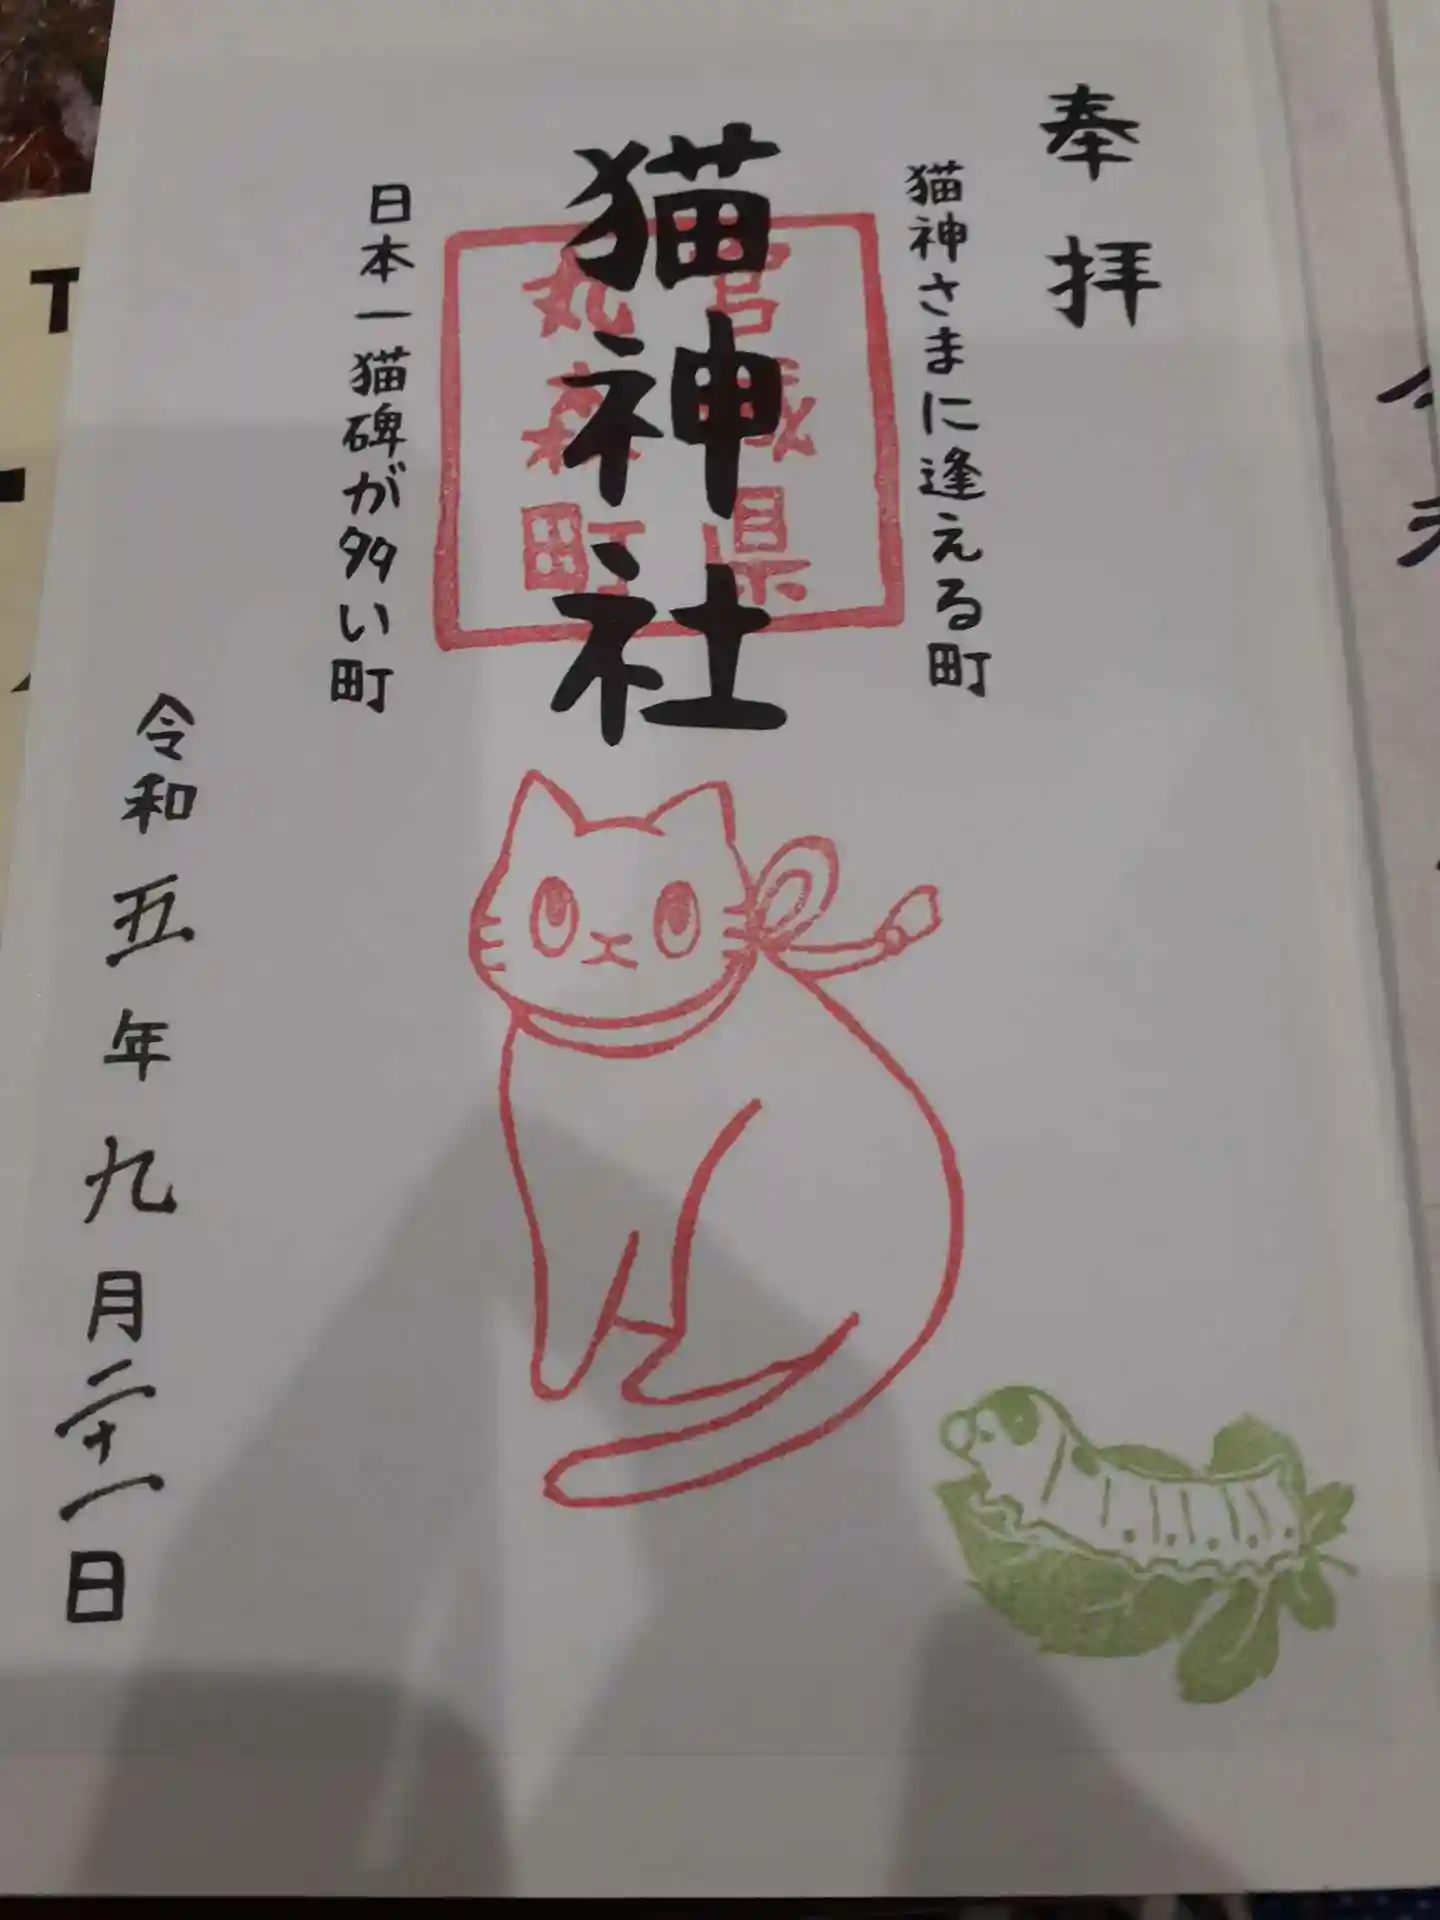 奉拝
猫神さまに逢える町
猫神社
宮城県
丸森町
日本一猫碑が多い町
令和五年九月二十一日